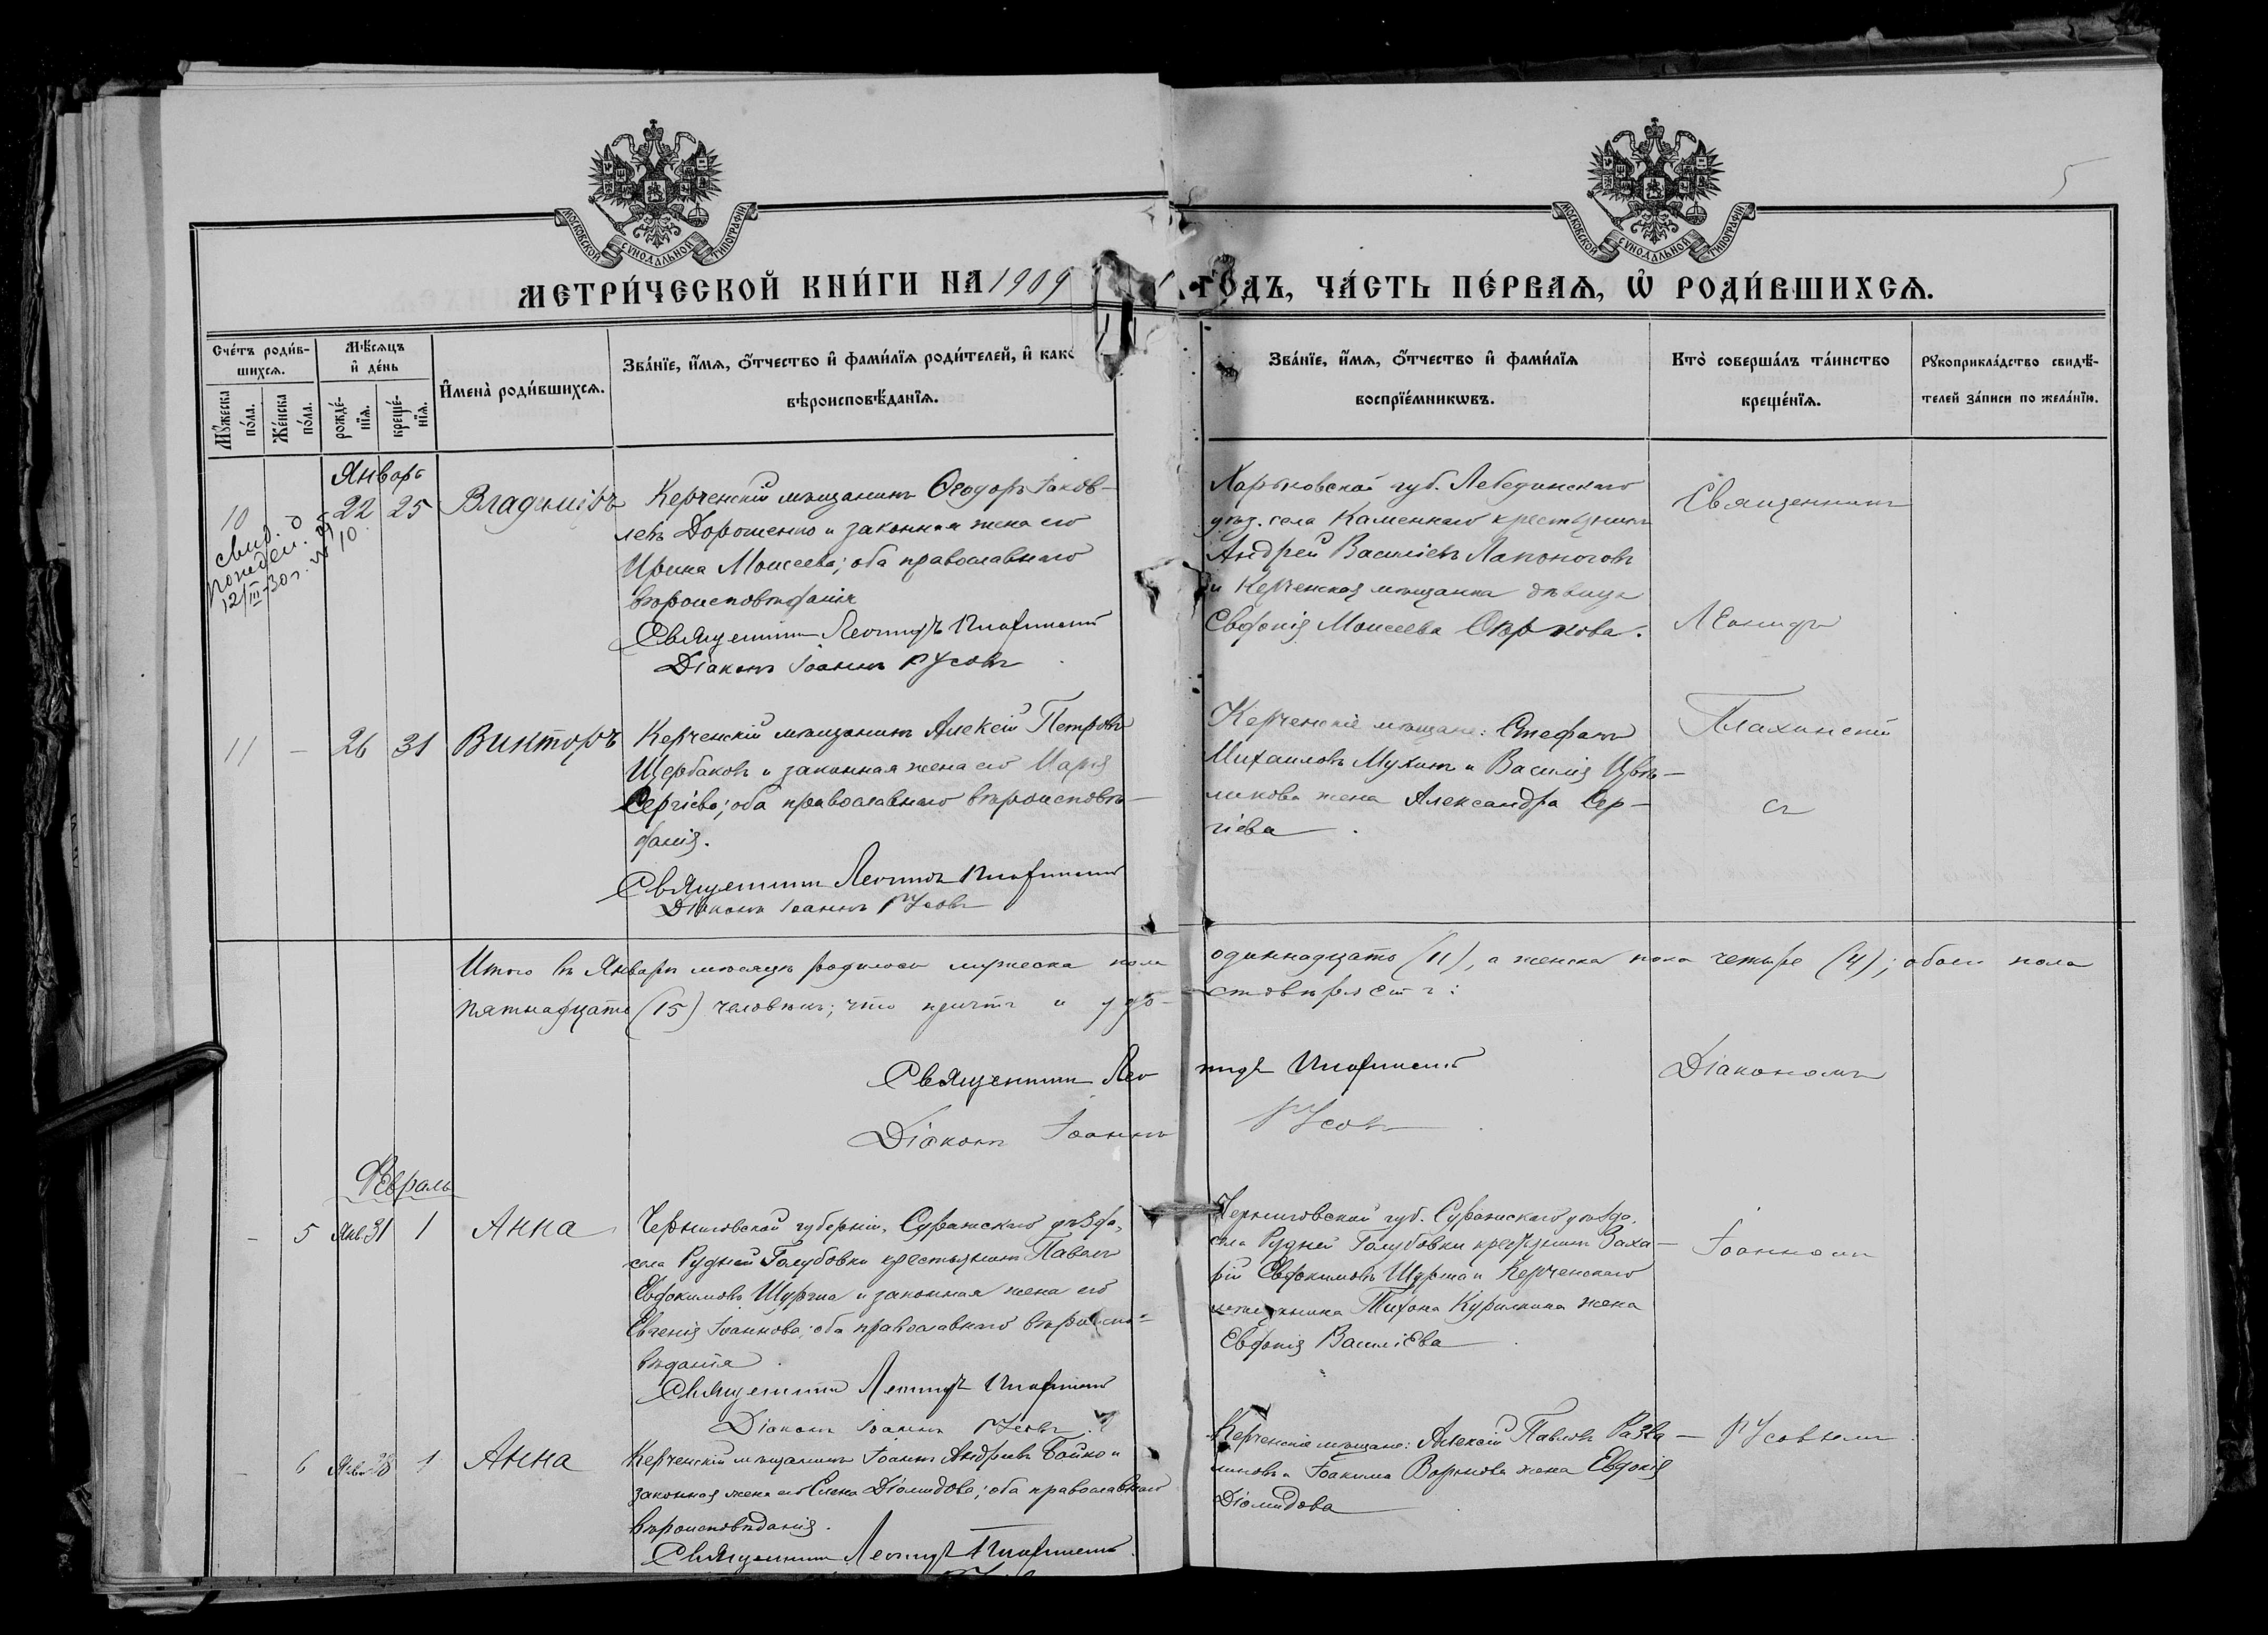 5
МОСКОВСКОЙ СУНОДАЛЬНОЙ ТИПОГРАФІИ
МОСКОВСКОЙ СУНОДАЛЬНОЙ ТИПОГРАФІИ
МЕТРИ́ЧЕСКОЙ КНИ́ГИ НА 1909 ГОДЪ, ЧА́СТЬ ПЕ́РВАѦ, Ѡ҆ РОДИ́ВШИХСѦ.
Сче́тъ роди́в-
шихсѧ.
Мꙋ́жеска
по́ла.
Же́нска
по́ла.
Мѣ́сѧцъ
и҆ де́нь
рожде́-
нїѧ.
креще́-
нїѧ.
И҆мена̀ роди́вшихсѧ.
Зва́нїе, и҆́мѧ, ѻ҆́тчество и҆ фами́лїѧ роди́телей, и҆ како
вѣроисповѣ́данїѧ.
Зва́нїе, и҆́мѧ, ѻ҆́тчество и҆ фами́лїѧ
воспрїе́мникѡвъ.
Кто̀ соверша́лъ та́инство
креще́нїѧ.
Рꙋкоприкла́дство свидѣ́-
телей за́писи по жела́нїю.
Январь
10
22 25 Владиміръ
12/III-30 г. № 10
Керченскій мѣщанинъ Ѳеодоръ Іаков-
левъ Дорошенко и законная жена его
Ирина Моисеева; оба православнаго
вѣроисповѣданія
Священникъ Леонидъ Плахинскій
Діаконъ Іоаннъ Русовъ
Харьковской губ. Лебединскаго
уѣз. села Каменнаго крестьянинъ
Андрей Василіевъ Лапоноговъ
и Керченская мѣщанка дѣвица
Евдокія Моисеева
Священникъ
Леонидъ
11 - 26 31 Викторъ
Керченскій мѣщанинъ Алексій Петровъ
Щербаковъ и законная жена его Марія
Сергіева; оба православнаго вѣроисповѣ-
данія.
Священникъ Леонидъ Плахинскій
Діаконъ Іоаннъ Русовъ
Керченскіе мѣщане: Стефанъ
Михаиловъ Мухинъ и Василія Цвѣ-
ликова жена Александра Сер-
гіева
Плахинскій
съ
Итого въ Январѣ мѣсяцѣ родилось мужеска пола одиннадцать (11), а женска пола четыре (4); обоего пола
пятнадцать (15) человѣкъ; что причтъ и удо-стовѣряетъ:
Священникъ Леонидъ Плахинскій
Діаконъ Іоаннъ Русовъ
Діакономъ
Февраль
- 5 Янв. 31 1 Анна
Черниговской губерніи, Суражскаго уѣзда,
села Рудней Голубовки крестьянинъ Павелъ
Евдокимовъ Шурма и законная жена его
Евгенія Іоаннова; оба православнаго вѣроиспо-
вѣданія
Священникъ Леонидъ Плахинскій
Діаконъ Іоаннъ Русовъ
Черниговской губ. Суражскаго уѣзда,
села Рудней Голубовки крестьянинъ Заха-
рій Евдокимовъ Шурма и Керченскаго
мѣщанина Тихона Курилкина жена
Евдокія Василіева
Іоанномъ
- 6 Янв. 28 1 Анна
Керченскій мѣщанинъ Іоаннъ Андреевъ Бойко и
законная жена его Елена Діомидова; оба православнаго
вѣроисповѣданія.
Священникъ Леонидъ Плахинскій
Керченскіе мѣщане: Алексій Павловъ Разва-
линовъ и Іоакима Воронова жена Евдокія
Діомидова
Русовымъ